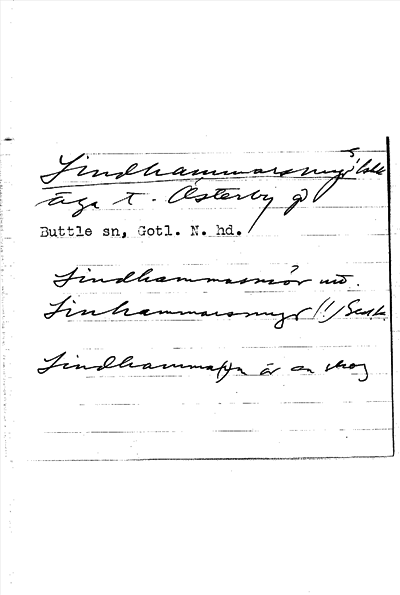 Lindhammarsmyr,
äga t. Österby g
Buttle sn, Gotl. N. hd.
Lindhammarmör
Linhammarsmyr (!)
Lindhammar(n är en skog